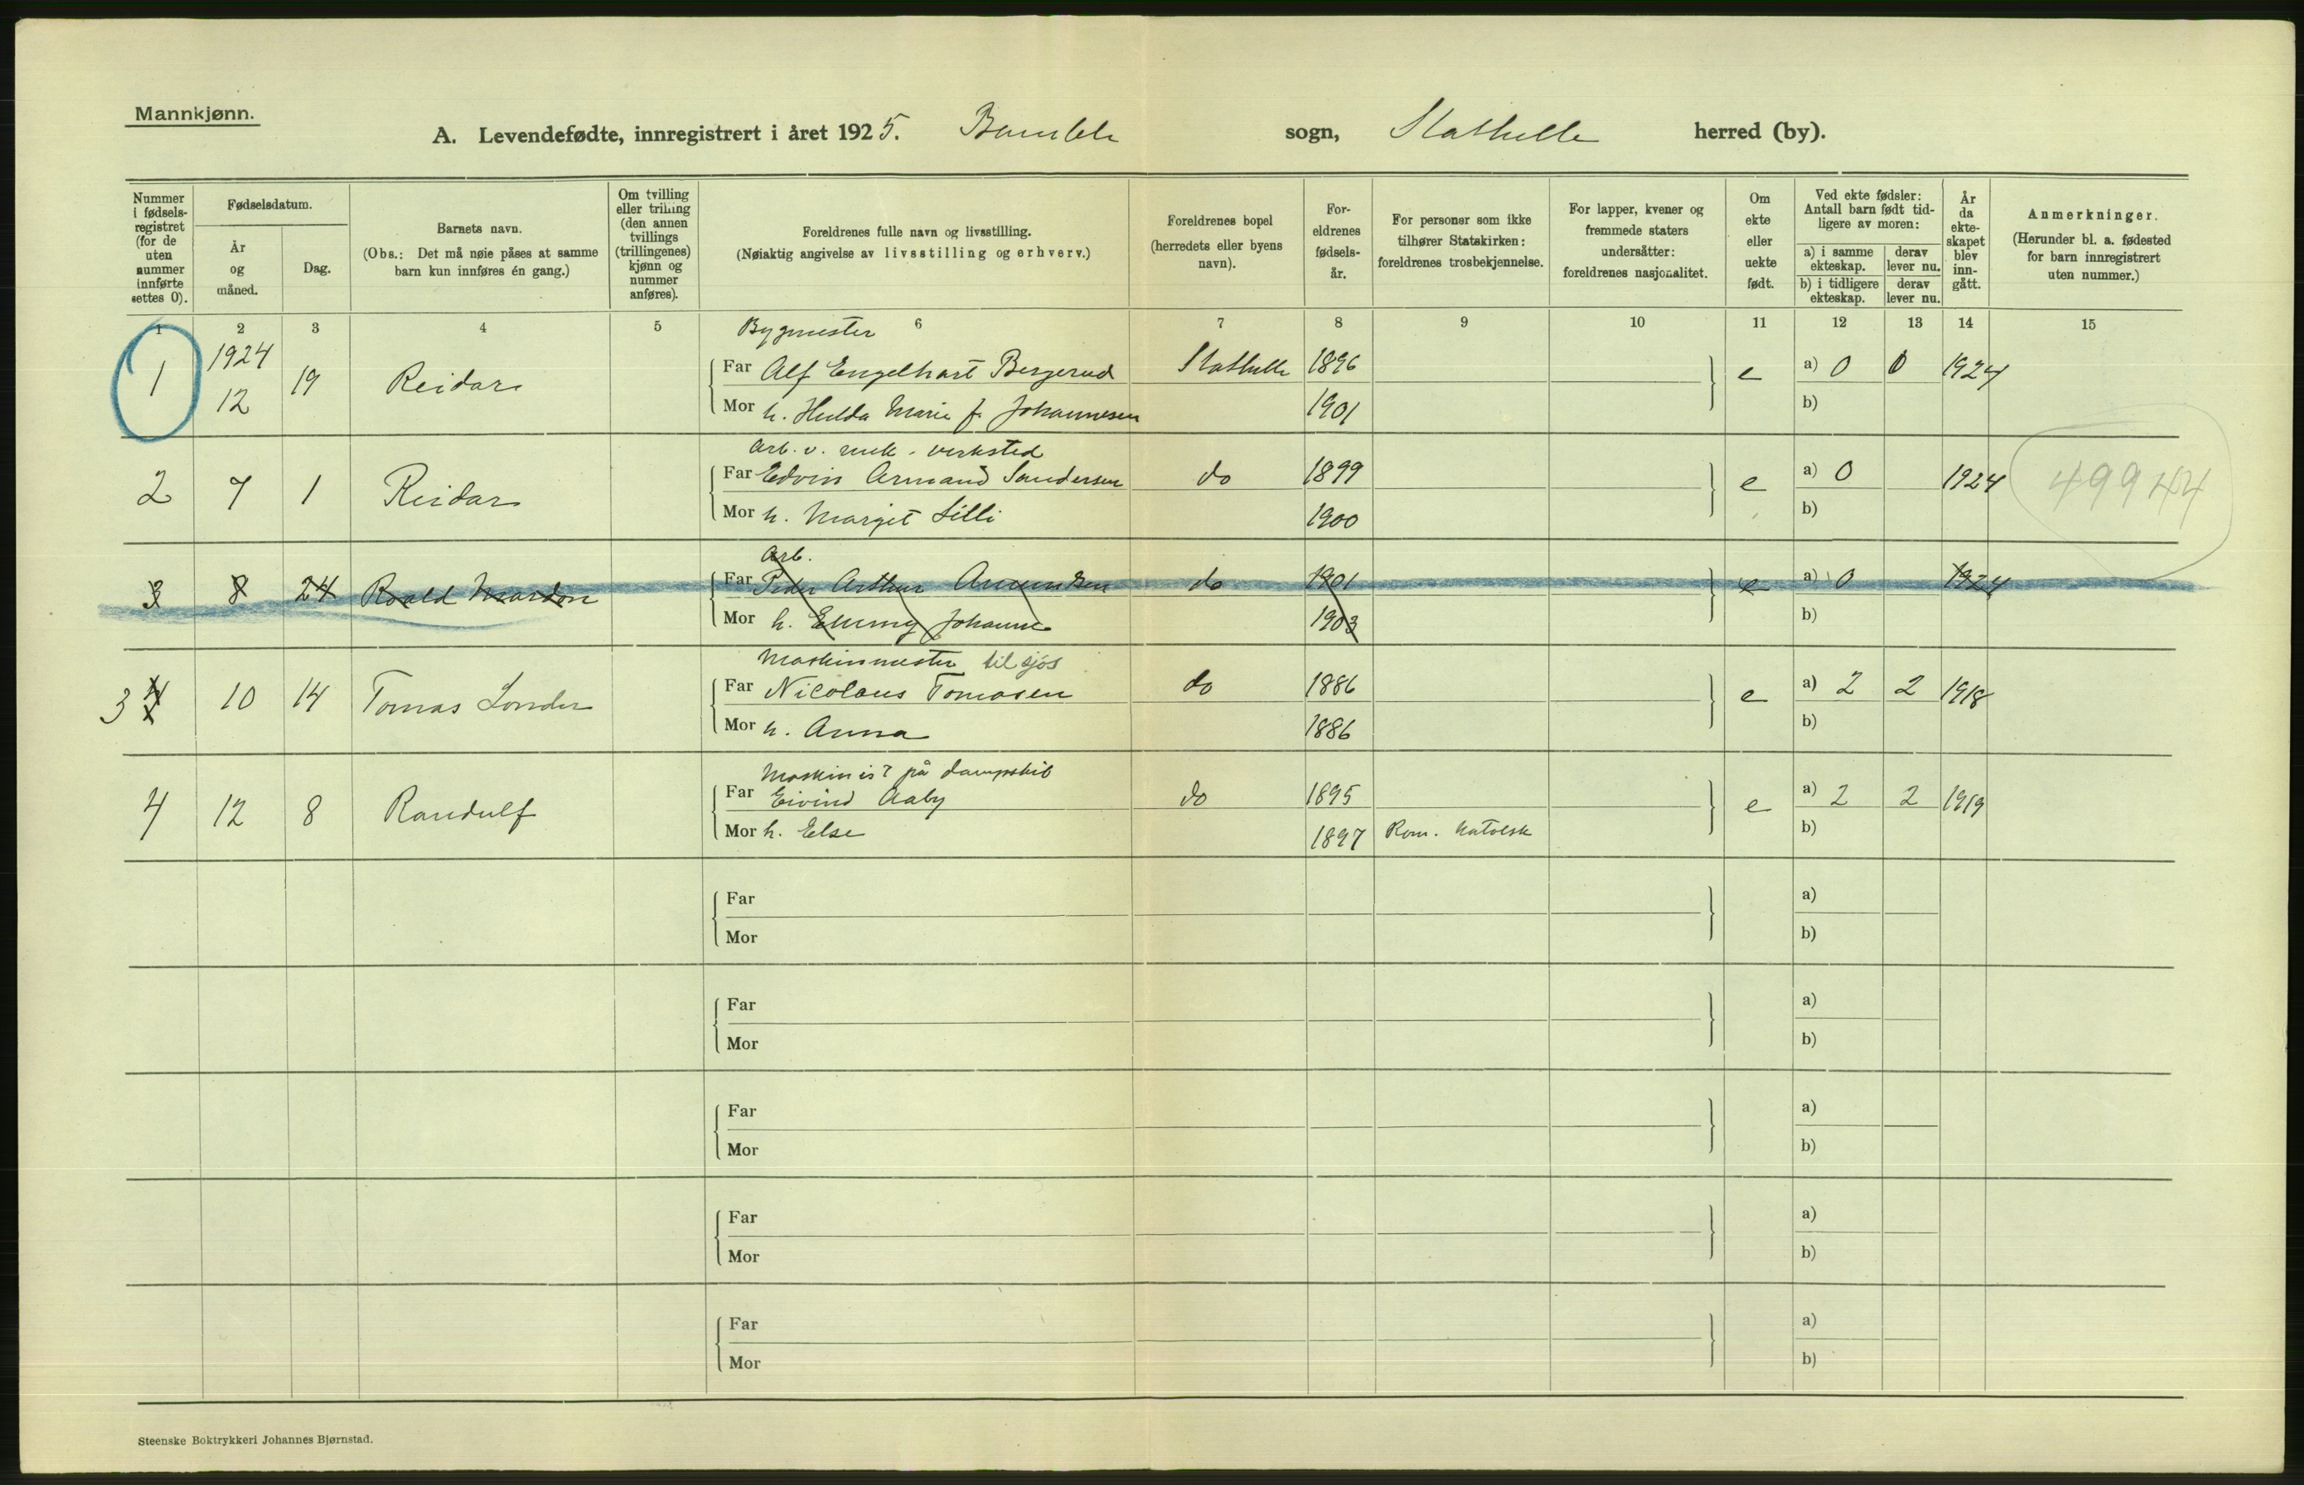 Mannkjønn.
A. Levendefødte, innregistrert i året 1925. Bamble sogn, Stathelle herred (by).
Nummer i fødselsregistret (for de uten nummer innførte settes 0).
Fødselsdatum.
År og måned.
Dag.
Barnets navn.
(Obs.: Det må nøie påses at samme barn kun innføres én gang.)
Om tvilling eller trilling (den annen tvillings (trillingenes) kjønn og nummer anføres).
Foreldrenes fulle navn og livsstilling.
(Nøiaktig angivelse av livsstilling og erhverv.)
Foreldrenes bopel (herredets eller byens navn).
Foreldrenes fødselsår.
For personer som ikke tilhører Statskirken: foreldrenes trosbekjennelse.
For lapper, kvener og fremmede staters undersåtter: foreldrenes nasjonalitet.
Om ekte eller uekte født.
Ved ekte fødsler: Antall barn født tidligere av moren:
a) i samme ekteskap. derav lever nu.
b) i tidligere ekteskap. derav lever nu.
År da ekteskapet blev inngått.
Anmerkninger.
(Herunder bl. a. fødested for barn innregistrert uten nummer.)
1 2 3 4 5 6 7 8 9 10 11 12 13 14 15
Bygmester
1 1924 12 19 Reidar Far Alf Engelhart Bergerud Stathelle 1896 e a) 0 0 1924
Mor h. Hulda Marie f. Johannesen 1901 b)
Arb. v. mek. verksted
2 7 1 Reidar Far Edvin Armand Sandersen do 1899 e a) 0 1924 49944
Mor h. Margit Lilli 1900 b)
Arb.
3 8 24 Roald Far Peder Arthur Amundsen do 1901 e a) 0 1924
Mor h. Emmy Johanne 1903 b)
Maskinmester til sjös
3 4 10 14 Tomas Far Nicolaus Tomasen do 1886 e a) 2 2 1918
Mor h. Anna 1886 b)
Maskinist på dampskib
4 12 8 Randulf Far Eivind Aaby do 1895 e a) 2 2 1919
Mor h. Else 1897 Rom. katolsk b)
Far a)
Mor b)
Far a)
Mor b)
Far a)
Mor b)
Far a)
Mor b)
Far a)
Mor b)
Steenske Boktrykkeri Johannes Bjørnstad.